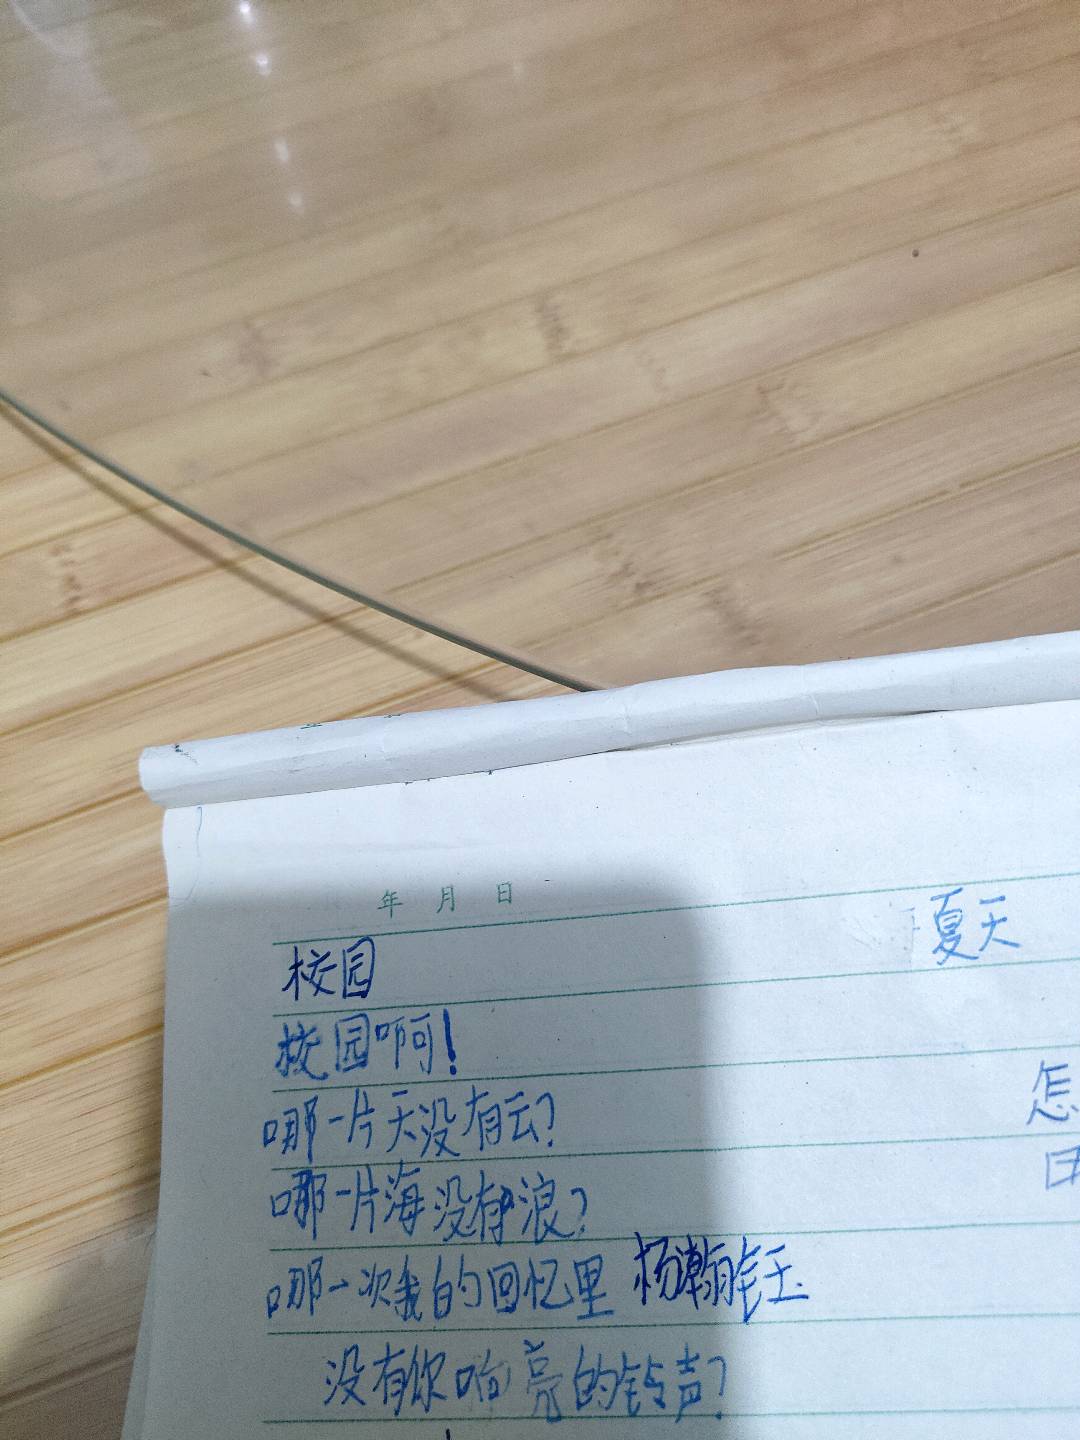 年 月 日
校园
校园啊!
哪一片天没有云?
哪一片海没有浪?
哪一次我的回忆里 杨瀚钰
没有你响亮的铃声?
夏天
怎